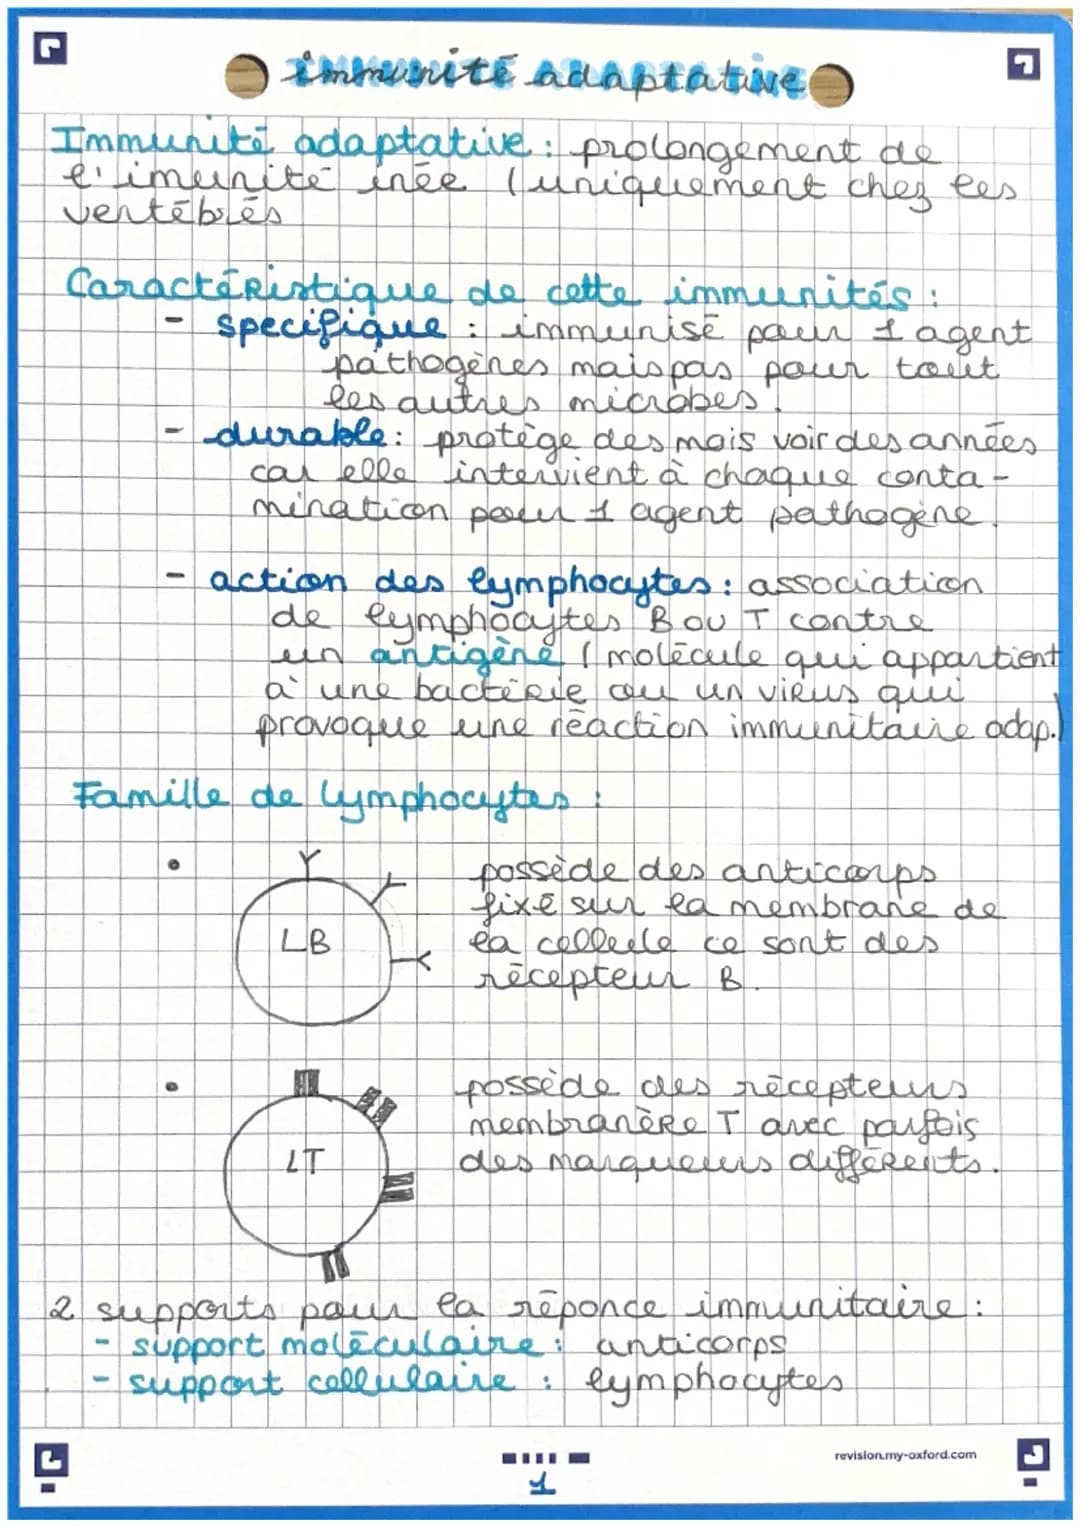 immunité adaptative
Immunité adaptative : prolongement de
l'imunité inée (uniquement chez les
vertébrés
Caractéristique de cette immunités :
- specifique : immunisé pour 1 agent
pathogènes mais pas pour tout
les autres microbes.
- durable : protège des mois voir des années
car elle intervient à chaque conta-
mination pour 1 agent pathogène.
- action des lymphocytes : association
de lymphocytes B ou T contre
un antigène (molécule qui appartient
à une bactérie ou un virus qui
provoque une réaction immunitaire adap.)
Famille de lymphocytes :
• LB
possède des anticorps
fixé sur la membrane de
la cellule ce sont des
récepteur B.
• LT
possède des récepteurs
membranère T avec parfois
des marqueurs différents.
2 supports pour la réponce immunitaire :
- support moléculaire : anticorps
- support cellulaire : lymphocytes
revision.my-oxford.com
1